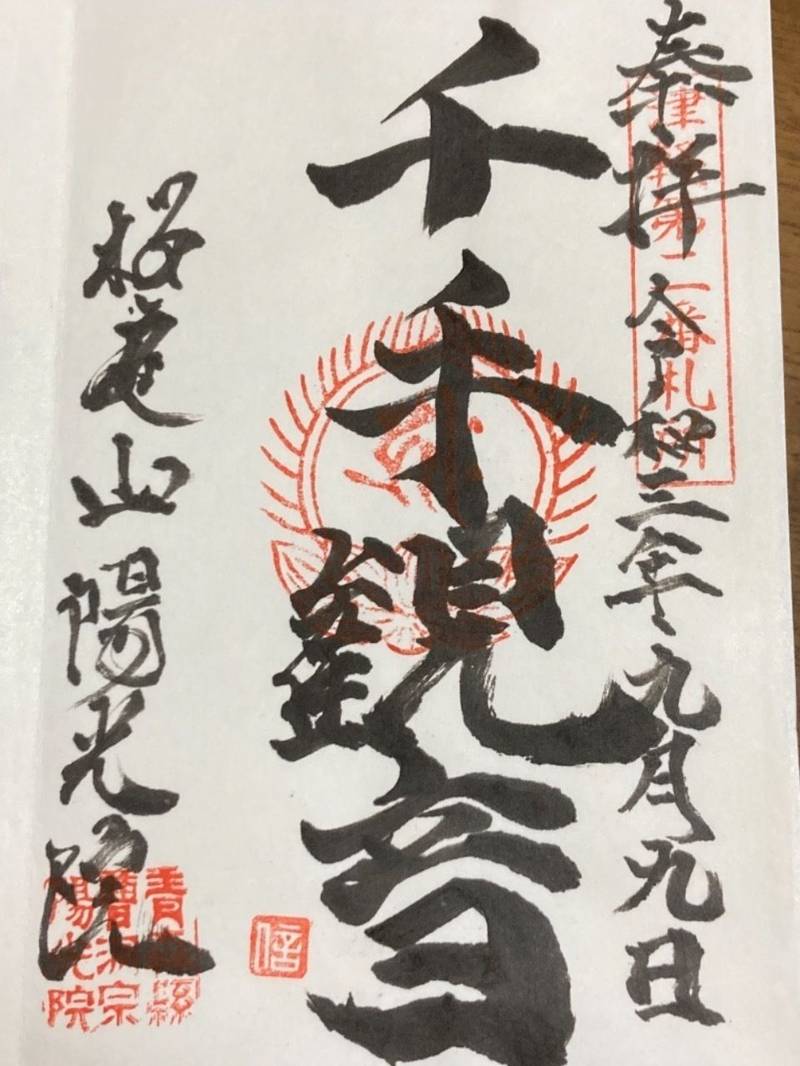 奉拝
令和三年九月九日
津軽第二番札所
千手観音
桜庭山陽光院
青森縣
曹洞宗
陽光院
信